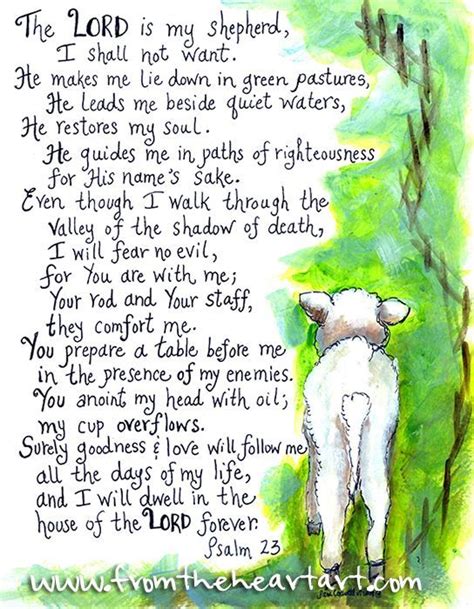 The LORD is my shepherd,
I shall not want.
He makes me lie down in green pastures,
He leads me beside quiet waters,
He restores my soul.
He guides me in paths of righteousness
for His name's sake.
Even though I walk through the
valley of the shadow of death,
I will fear no evil,
for You are with me;
Your rod and Your staff,
they comfort me.
You prepare a table before me
in the presence of my enemies.
You anoint my head with oil;
my cup overflows.
Surely goodness & love will follow me
all the days of my life,
and I will dwell in the
house of the LORD forever.
Psalm 23
www.fromtheheartart.com